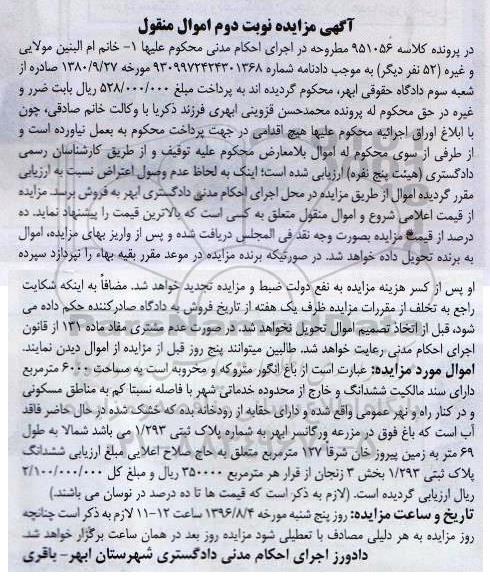 آگهی مزایده نوبت دوم اموال منقول
در پرونده کلاسه ۹۵۱۰۵۶ مطروحه در اجرای احکام مدنی محکوم علیها ۱- خانم ام البنین مولایی
و غیره (۵۲ نفر دیگر) به موجب دادنامه شماره ۹۳۰۹۹۷۲۴۲۴۳۰۱۳۶۸ مورخه ۱۳۸۰/۹/۲۷ صادره از
شعبه سوم دادگاه حقوقی ابهر، محکوم گردیده اند به پرداخت مبلغ ۵۲۸/۰۰۰/۰۰۰ ریال بابت ضرر و
غیره در حق محکوم له پرونده محمدحسن قزوینی ابهری فرزند ذکریا با وکالت خانم صادقی، چون
با ابلاغ اوراق اجرائیه محکوم علیها هیچ اقدامی در جهت پرداخت محکوم به بعمل نیاورده است و
از طرفی از سوی محکوم له اموال بلامعارض محکوم علیه توقیف و از طریق کارشناسان رسمی
دادگستری (هیئت پنج نفره) ارزیابی شده است؛ اینک به لحاظ عدم وصول اعتراض نسبت به ارزیابی
مقرر گردیده اموال از طریق مزایده در محل اجرای احکام مدنی دادگستری ابهر به فروش برسد. مزایده
از قیمت اعلامی شروع و اموال منقول متعلق به کسی است که بالاترین قیمت را پیشنهاد نماید. ده
درصد از قیمت مزایده بصورت وجه نقد فی المجلس دریافت شده و پس از واریز بهای مزایده، اموال
به برنده تحویل داده خواهد شد. در صورتیکه برنده مزایده در موعد مقرر بقیه بهاء را نپردازد سپرده
او پس از کسر هزینه مزایده به نفع دولت ضبط و مزایده تجدید خواهد شد. مضافاً به اینکه شکایت
راجع به تخلف از مقررات مزایده ظرف یک هفته از تاریخ فروش به دادگاه صادرکننده حکم داده می
شود، قبل از اتخاذ تصمیم اموال تحویل نخواهد شد. در صورت عدم مشتری مفاد ماده ۱۳۱ از قانون
اجرای احکام مدنی رعایت خواهد شد. طالبین میتوانند پنج روز قبل از مزایده از اموال دیدن نمایند.
اموال مورد مزایده: عبارت است از باغ انگور متروکه و مخروبه است به مساحت ۶۰۰۰ مترمربع
دارای سند مالکیت ششدانگ و خارج از محدوده خدماتی شهر با فاصله نسبتا کم به مناطق مسکونی
و در کنار راه و نهر عمومی واقع شده و دارای حقابه از رودخانه بده که خشک شده در حال حاضر فاقد
آب است که باغ فوق در مزرعه ورگانسر ابهر به شماره پلاک ثبتی ۱/۲۹۳ می باشد شمالا به طول
۶۹ متر به زمین پیروز خان شرقاً ۱۲۷ مترمربع متعلق به حاج صلاح اعلایی مبلغ ارزیابی ششدانگ
پلاک ثبتی ۱/۲۹۳ بخش ۳ زنجان از قرار هر مترمربع ۳۵۰۰۰۰ ریال و مبلغ کل ۲/۱۰۰/۰۰۰/۰۰۰
ریال ارزیابی گردیده است. (لازم به ذکر است که قیمت ها تا ده درصد در نوسان می باشند)
تاریخ و ساعت مزایده: روز پنج شنبه مورخه ۱۳۹۶/۸/۴ ساعت ۱۲-۱۱ لازم به ذکر است چنانچه
روز مزایده به هر دلیلی مصادف با تعطیلی شود مزایده روز بعد در همان ساعت برگزار خواهد شد.
دادورز اجرای احکام مدنی دادگستری شهرستان ابهر- باقری